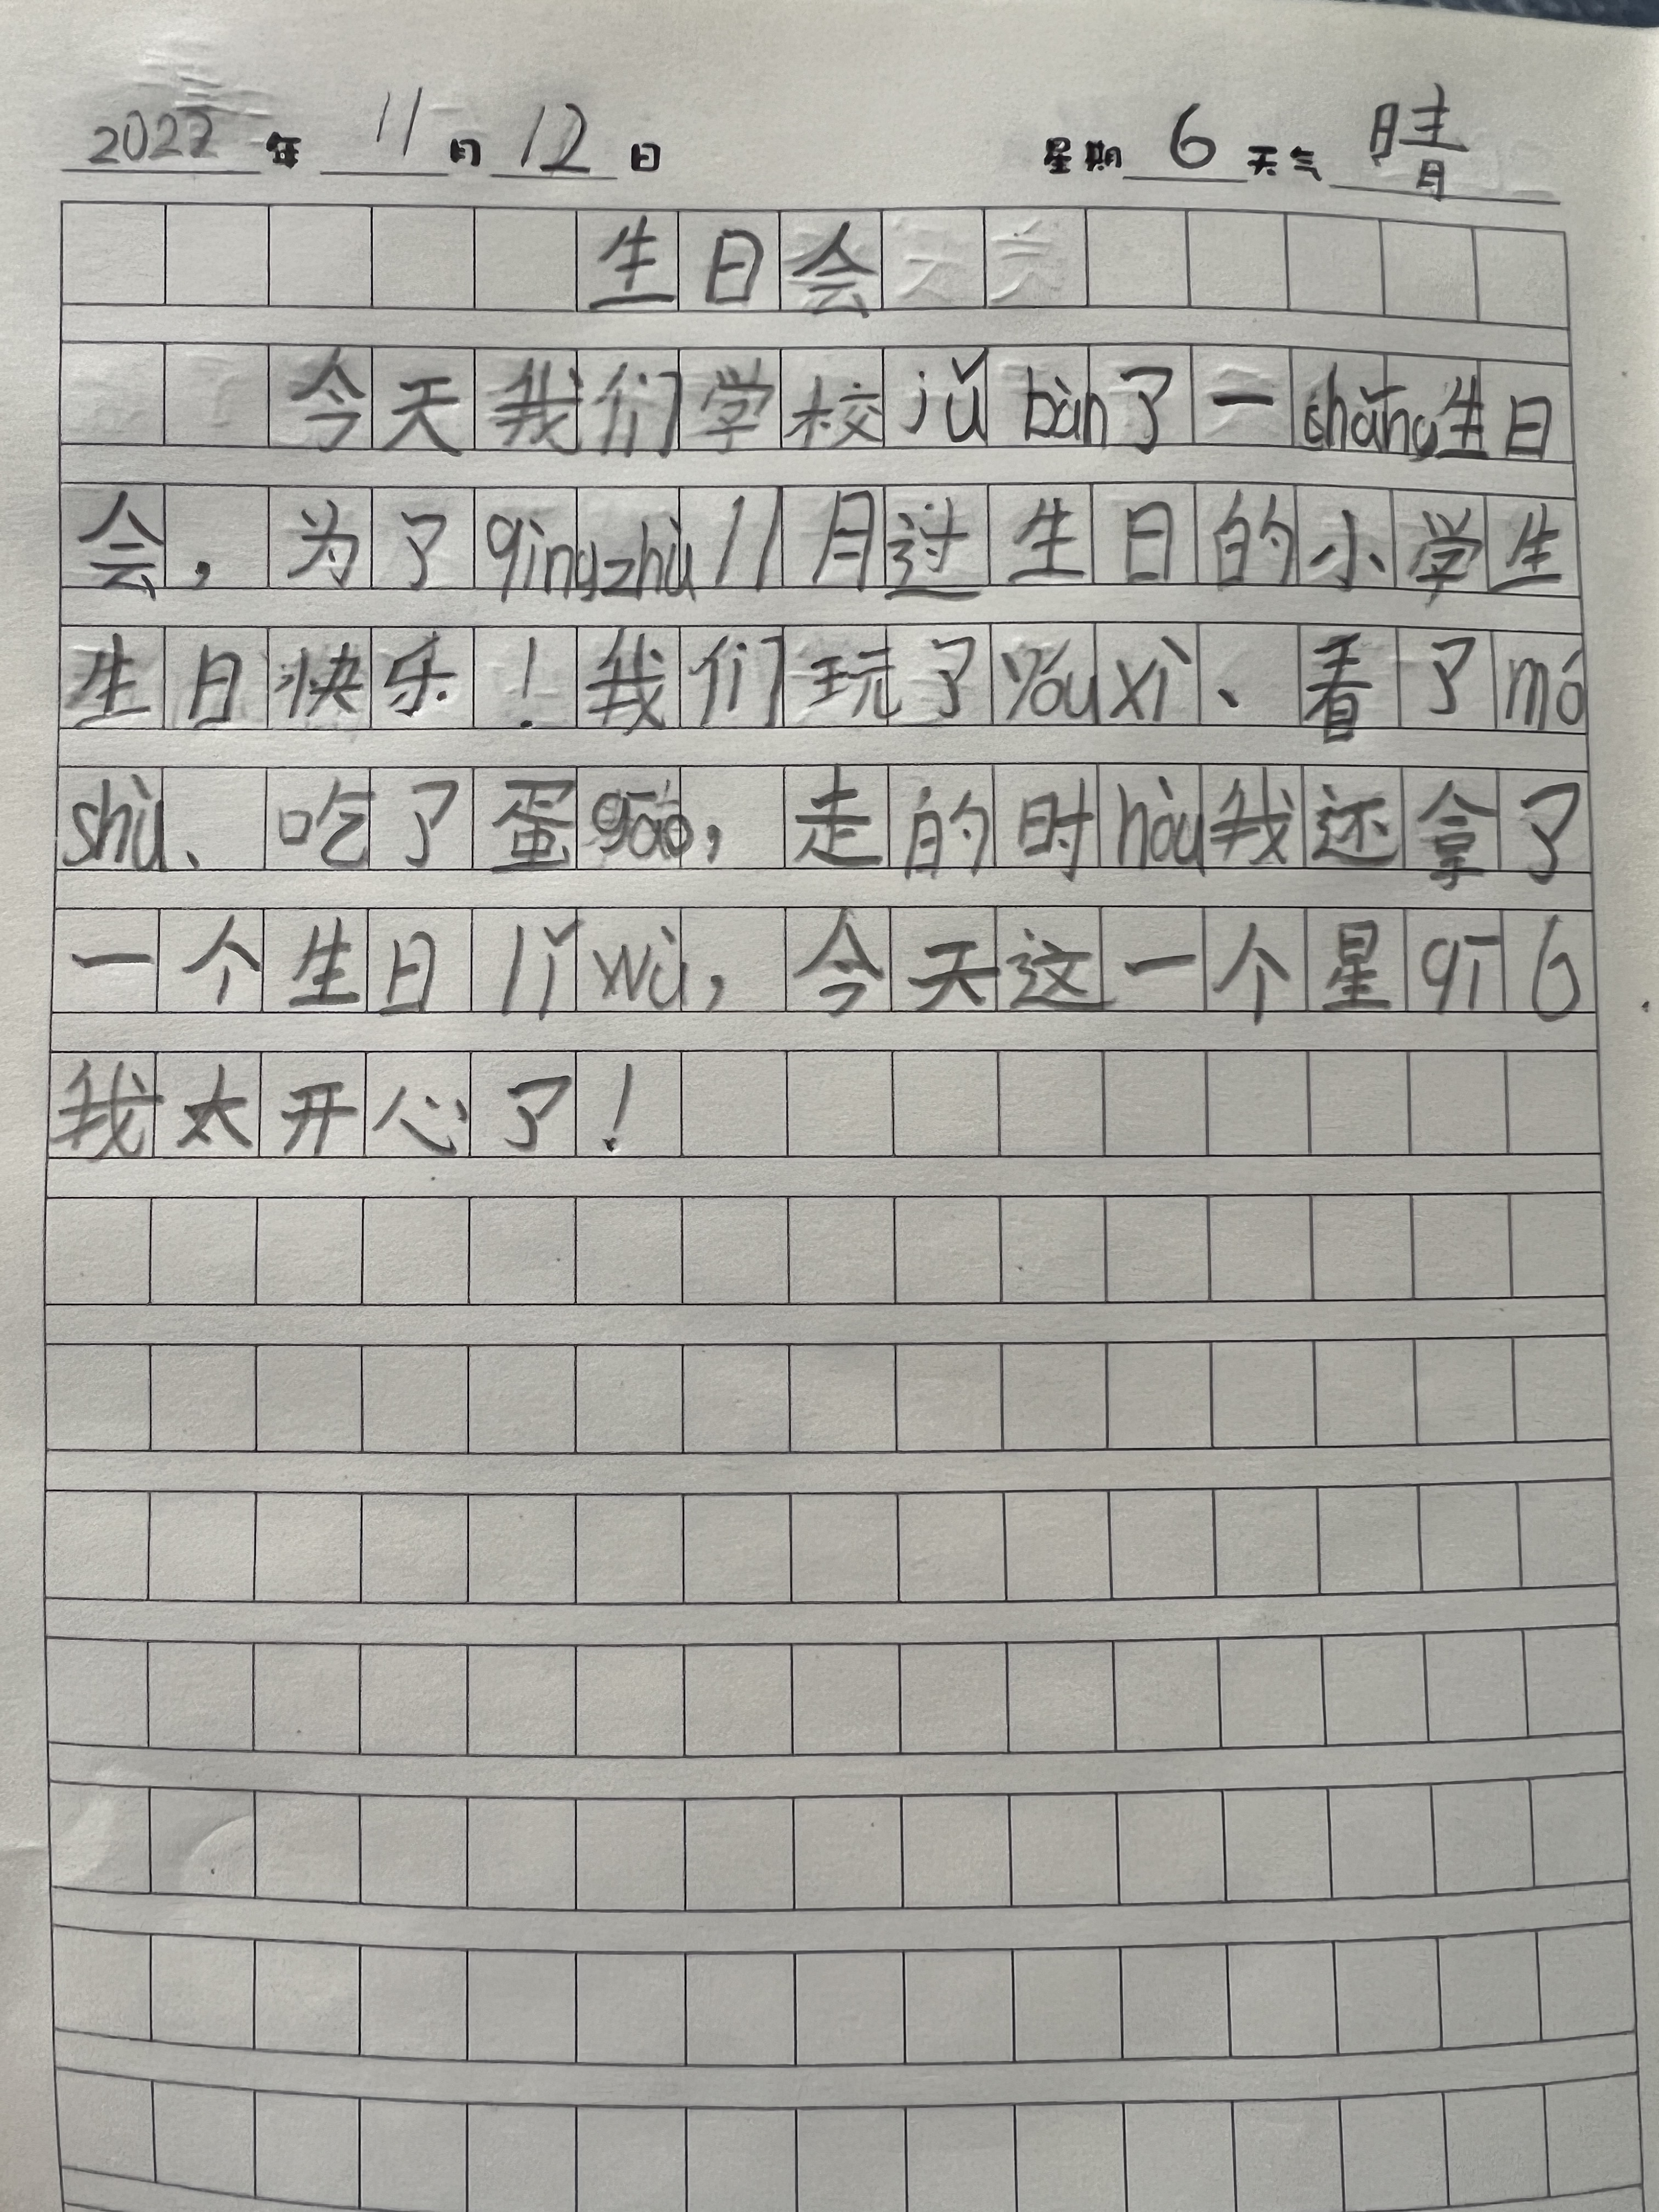 2022 年 11 月 12 日 星期 6 天气 晴
生日会
今天我们学校jǔ bàn了一chǎng生日
会，为了qìngzhù11月过生日的小学生
生日快乐！我们玩了yóuxì、看了mó
shù、吃了蛋gāo，走的时hòu我还拿了
一个生日lǐ wù，今天这一个星qī6
我太开心了！